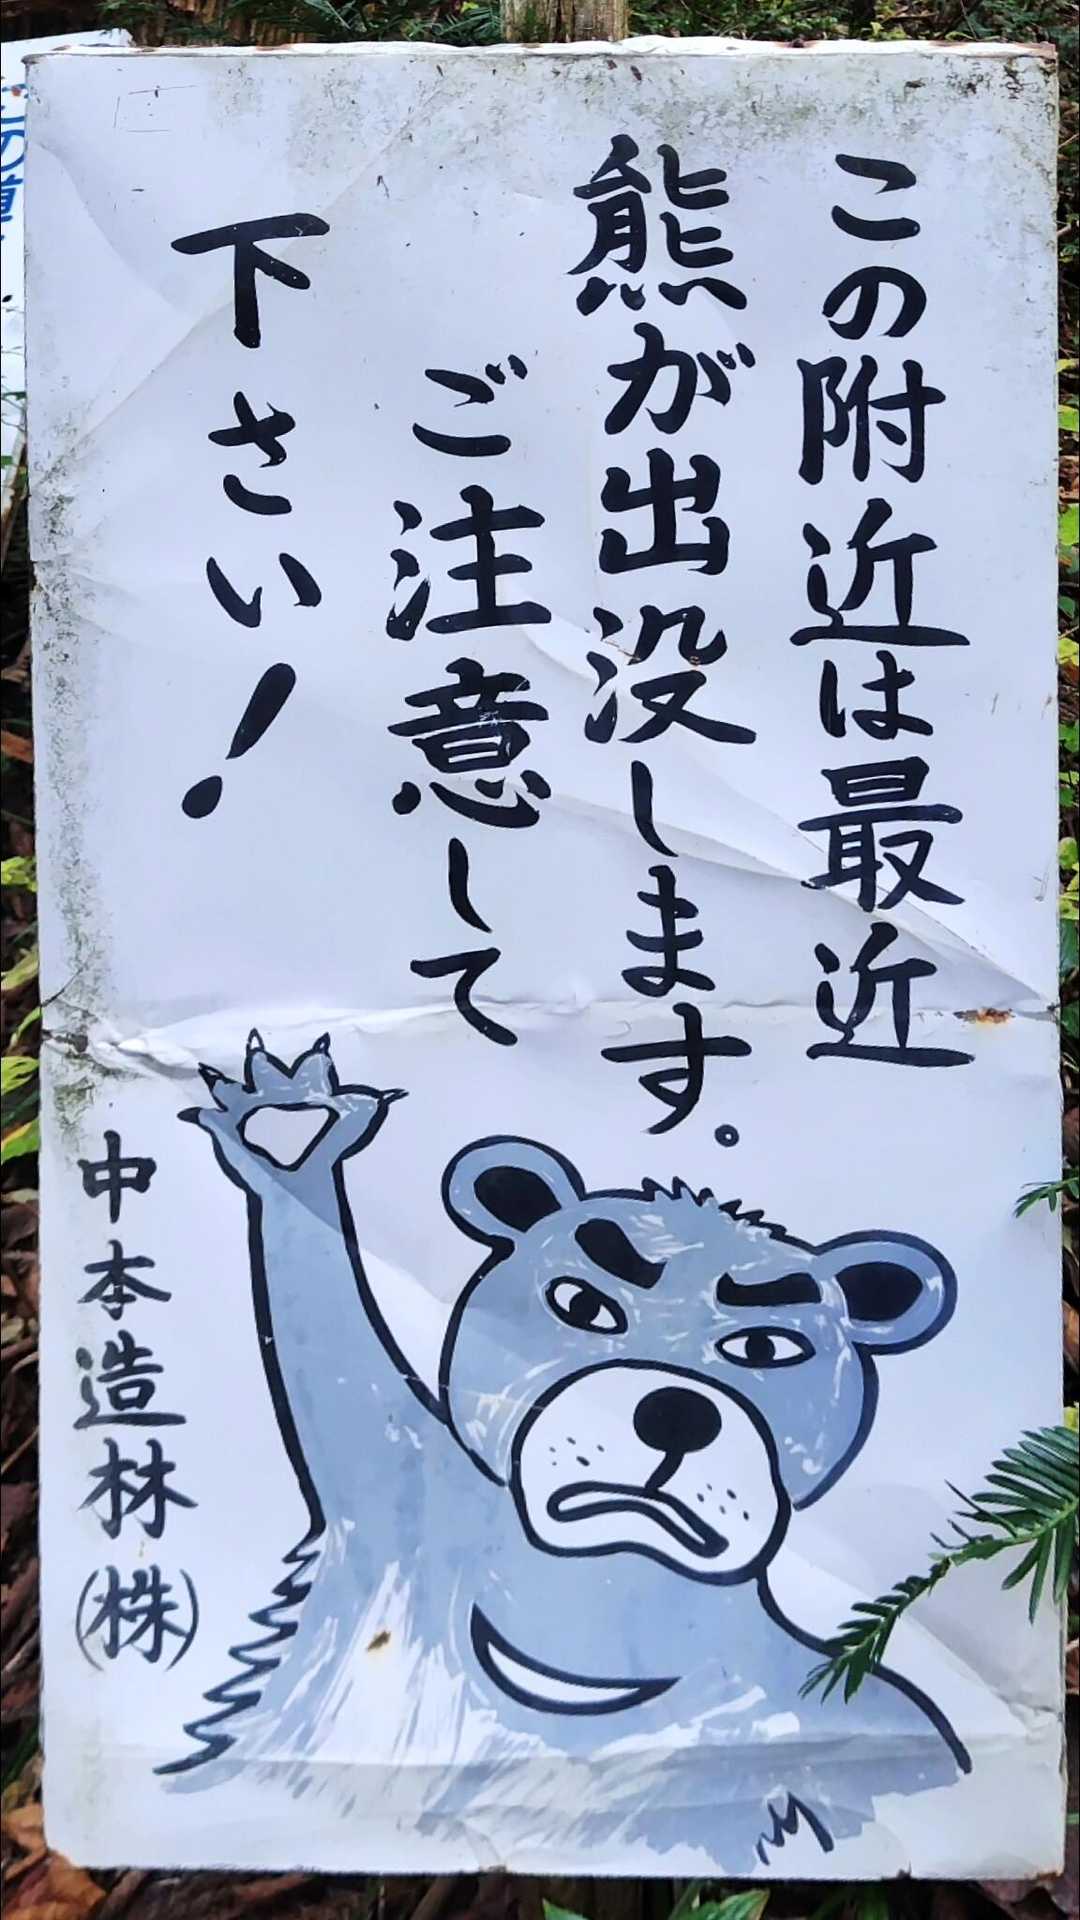 この附近は最近
熊が出没します。
ご注意して
下さい!
中本造林(株)
の